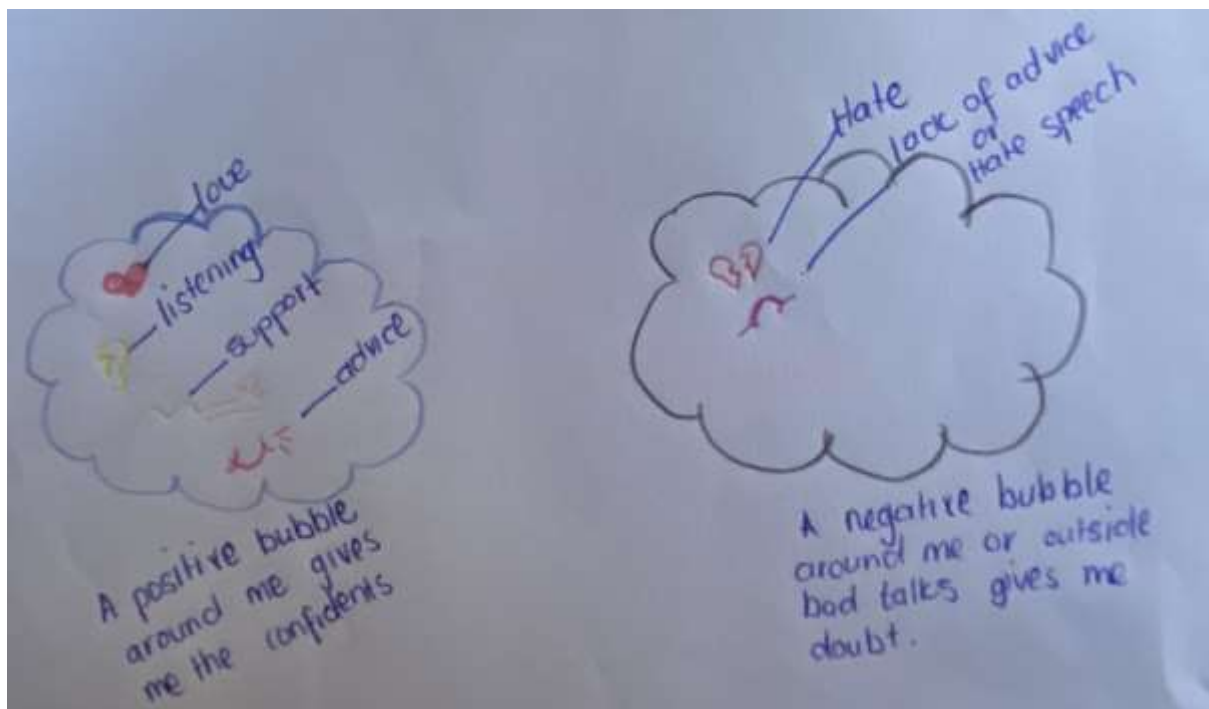 love
listening
support
advice
A positive bubble
around me gives
me the confidents
Hate
lack of advice
or
Hate speech
A negative bubble
around me or outside
bad talks gives me
doubt.